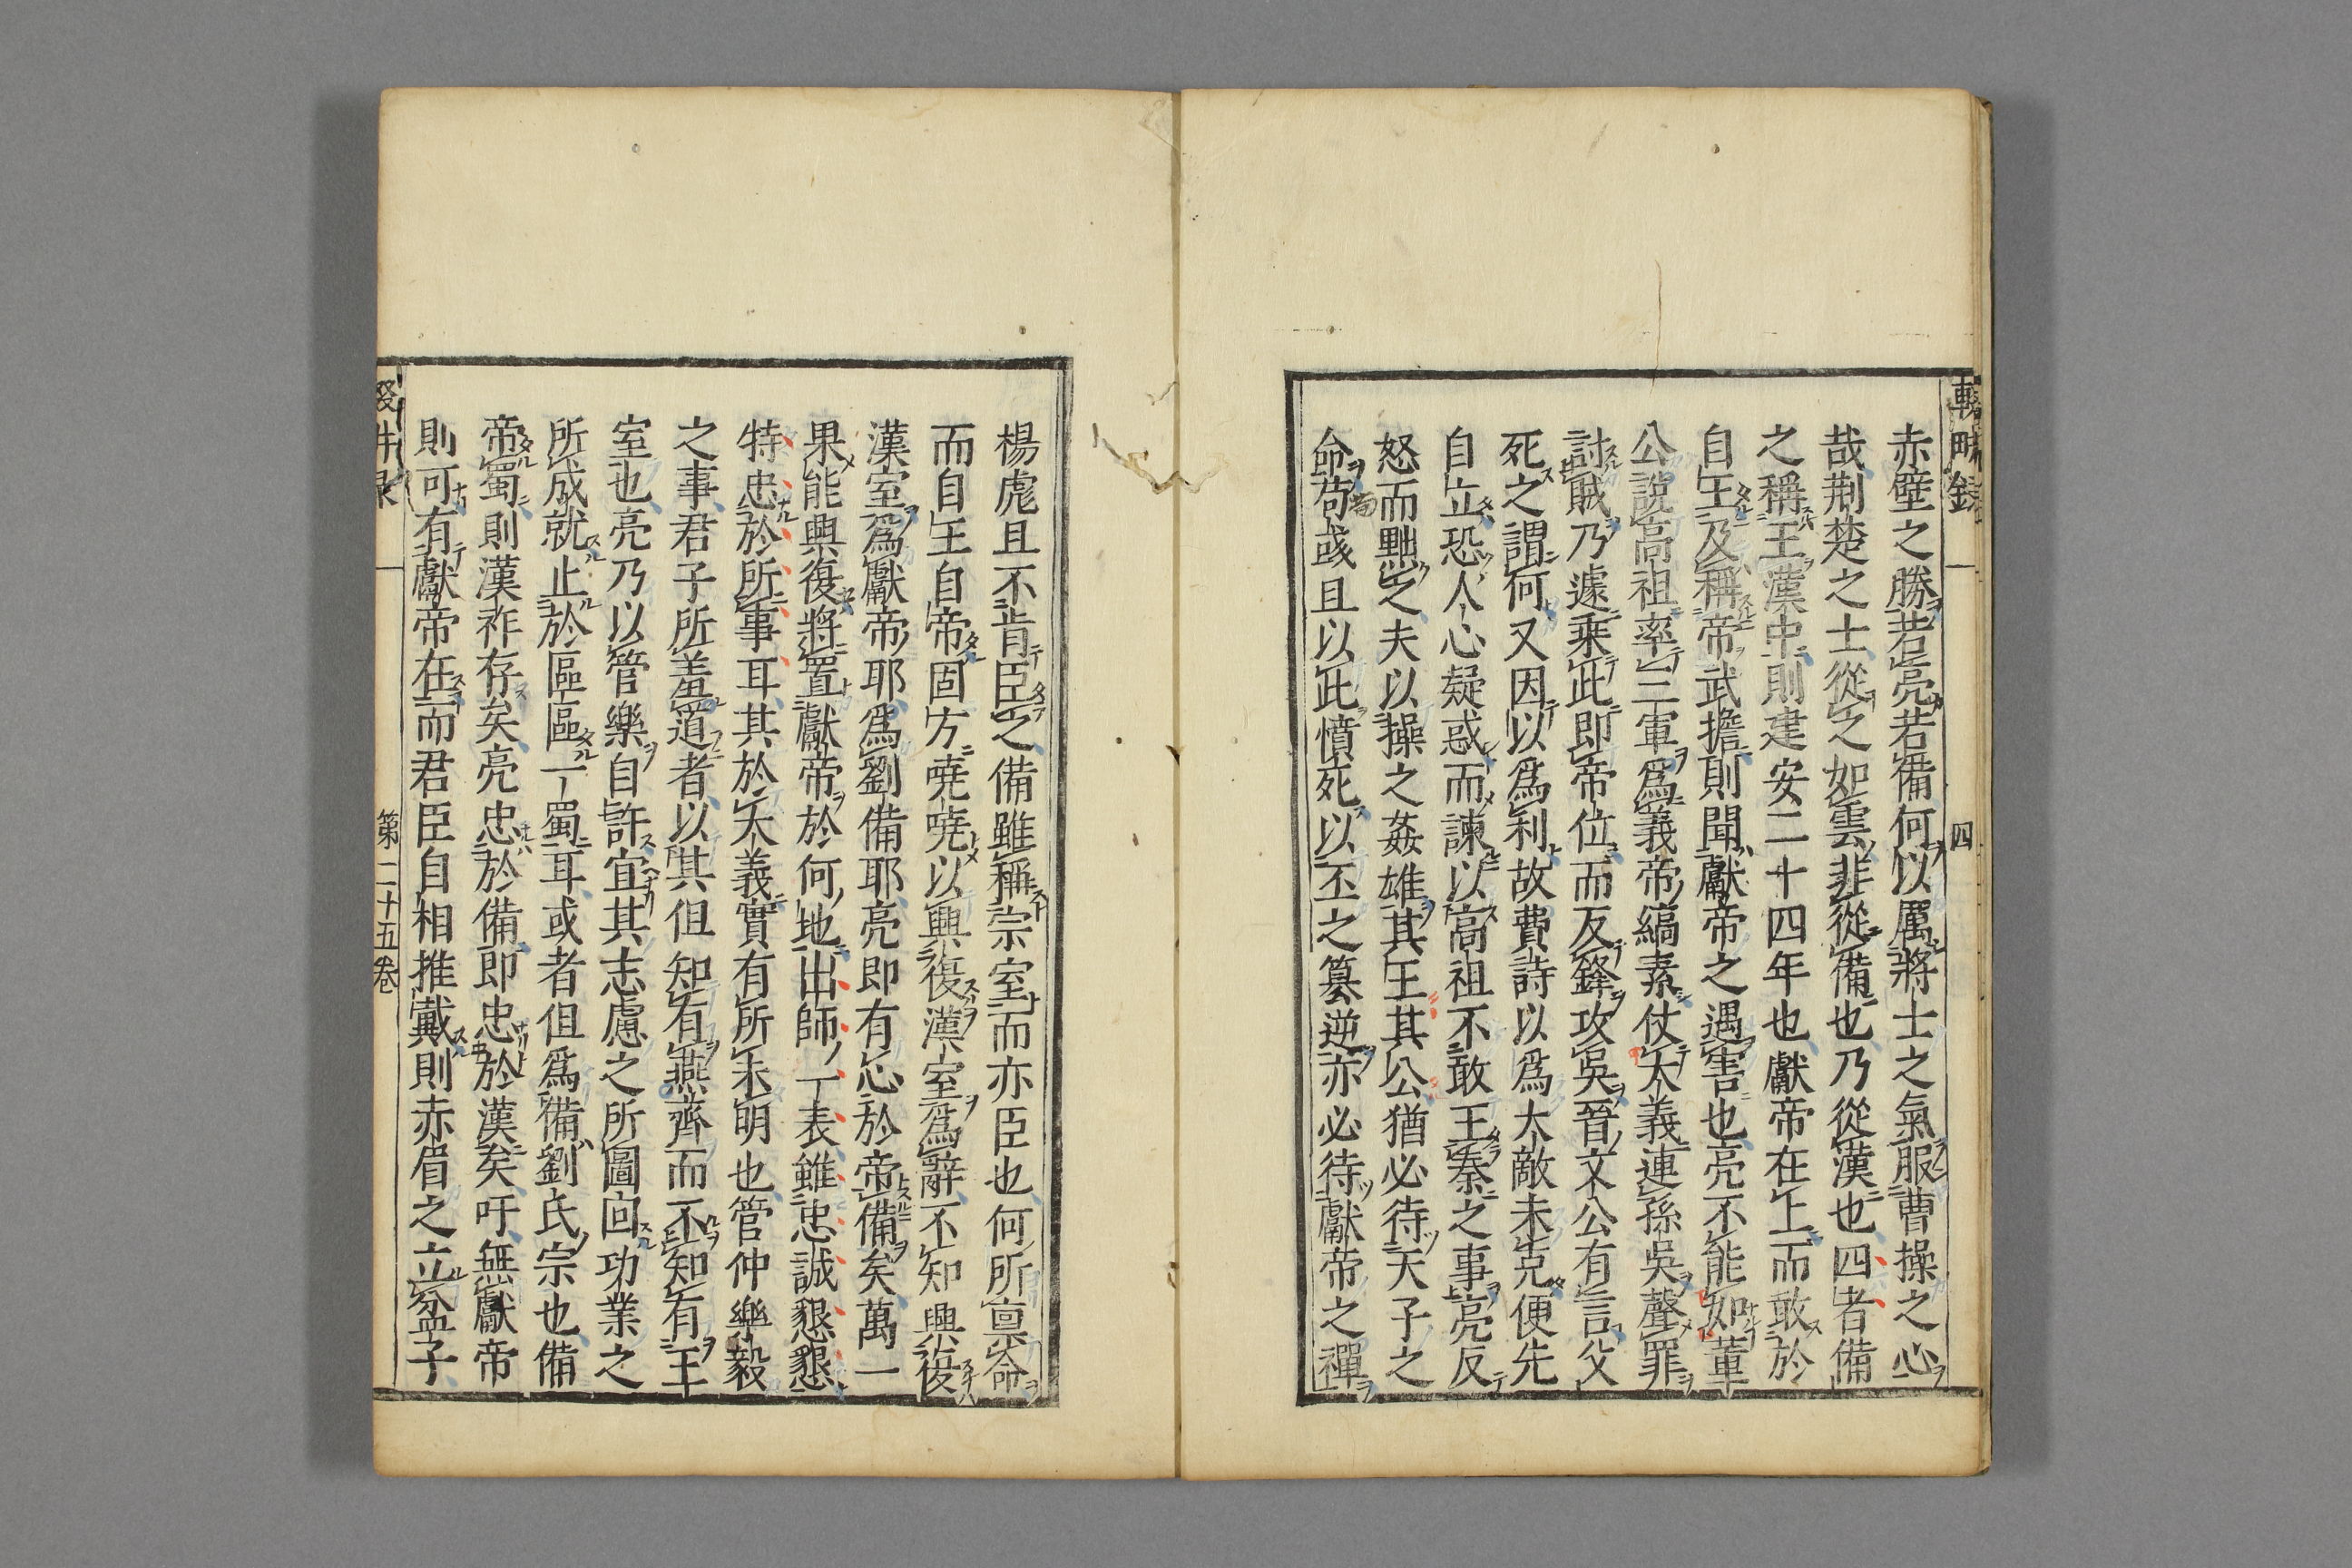 輟畊録
四
赤壁之勝若亮若備何以厲將士之氣服曹操之心
哉荆楚之士從之如雲非從備也乃從漢也四者備
之稱王漢中則建安二十四年也獻帝在上而敢於
自王及稱帝武擔則聞獻帝之遇害也亮不能如董
公説高祖率三軍爲義帝縞素仗大義連孫吳聲罪
討賊乃遽乘此即帝位而反鋒攻吳晉文公有言父
死之謂何又因以爲利故費詩以爲大敵未克便先
自立恐人心疑惑而諫以高祖不敢王秦之事亮反
怒而黜之夫以操之姦雄其王其公猶必待天子之
命荀彧且以此憤死以丕之篡逆亦必待獻帝之禪
楊彪且不肯臣之備雖稱宗室而亦臣也何所稟命
而自王自帝固方嘵嘵以興復漢室爲辭不知興復
漢室爲獻帝耶爲劉備耶亮即有心於帝備矣萬一
果能興復將置獻帝於何地出師一表雖忠誠懇懇
特忠於所事耳其於大義實有所未明也管仲樂毅
之事君子所羞道者以其但知有燕齊而不知有王
室也亮乃以管樂自許宜其志慮之所圖回功業之
所成就止於區區一蜀耳或者但爲備劉氏宗也備
帝蜀則漢祚存矣亮忠於備即忠於漢矣吁無獻帝
則可有獻帝在而君臣自相推戴則赤眉之立盆子
第二十五卷